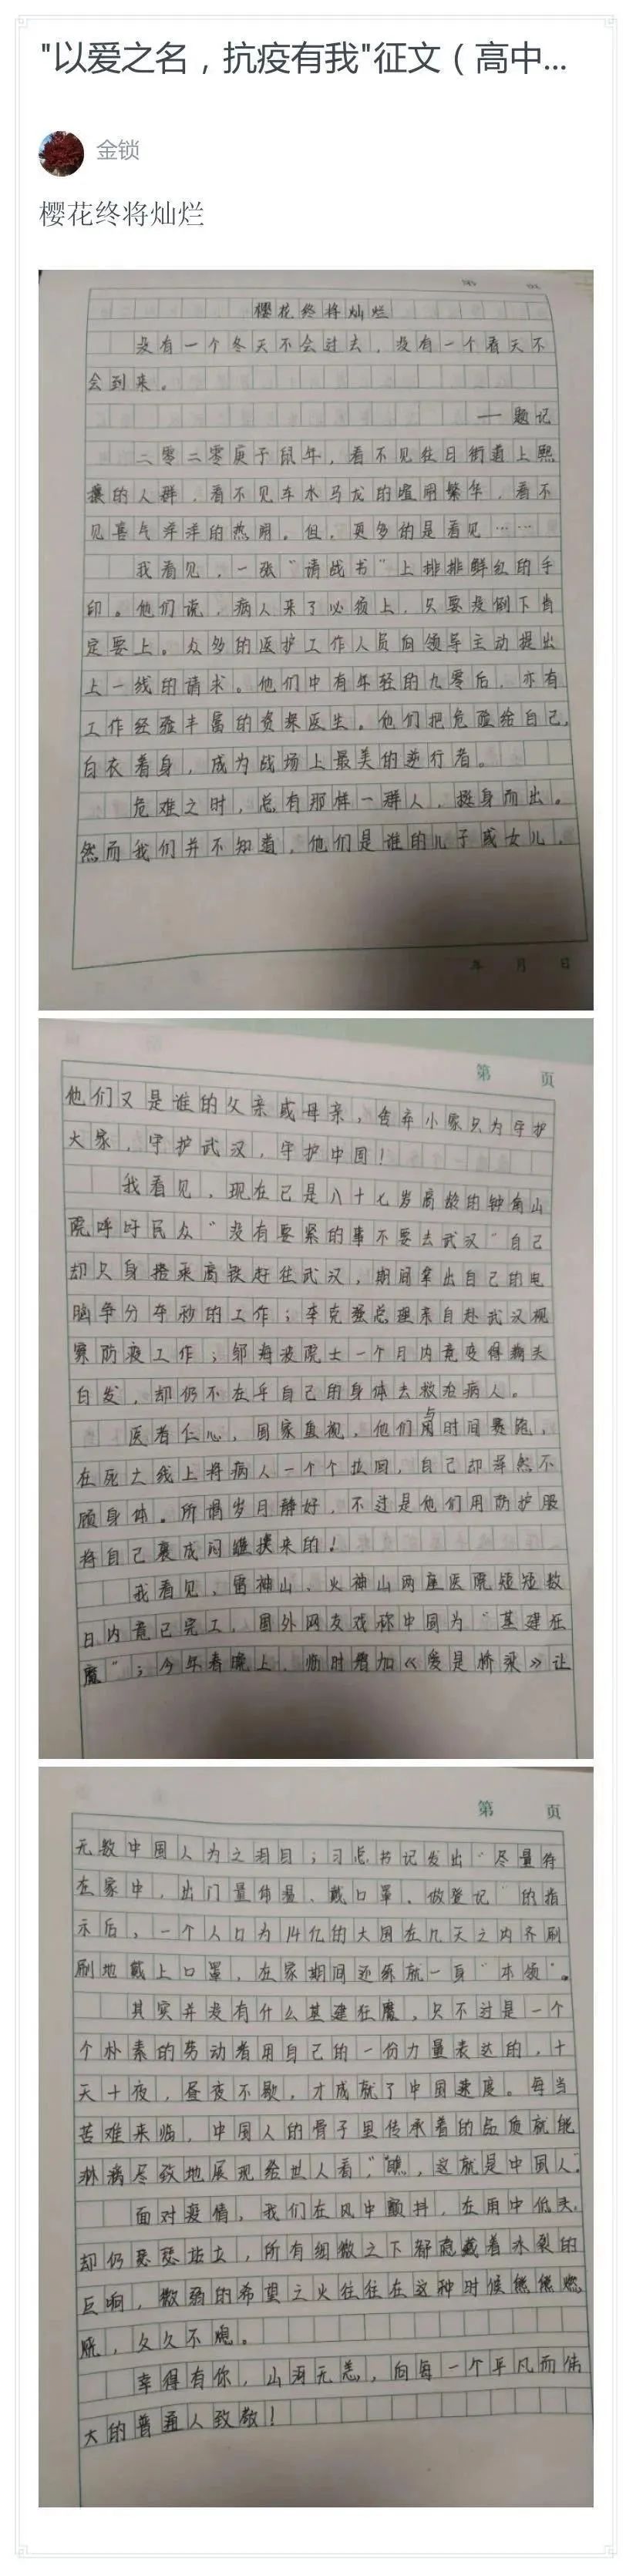 "以爱之名，抗疫有我"征文（高中...
金锁
樱花终将灿烂
樱花终将灿烂
没有一个冬天不会过去，没有一个春天不
会到来。
——题记
二零二零庚子鼠年，看不见往日街道上熙
攘的人群，看不见车水马龙的喧闹繁华，看不
见喜气洋洋的热闹。但，更多的是看见……
我看见，一张“请战书”上排排鲜红的手
印。他们说，病人来了必须上，只要没倒下肯
定要上。众多的医护工作人员向领导主动提出
上一线的请求。他们中有年轻的九零后，亦有
工作经验丰富的资深医生。他们把危险给自己，
白衣着身，成为战场上最美的逆行者。
危难之时，总有那样一群人，挺身而出。
然而我们并不知道，他们是谁的儿子或女儿，
第 页
他们又是谁的父亲或母亲，舍弃小家只为守护
大家，守护武汉，守护中国！
我看见，现在已是八十七岁高龄的钟南山
院呼吁民众“没有要紧的事不要去武汉”自己
却只身搭乘高铁赶往武汉，期间拿出自己的电
脑争分夺秒的工作；李克强总理亲自赴武汉视
察防疫工作；邬海波院士一个月内竟变得满头
白发，却仍不在乎自己的身体去救治病人。
医者仁心，国家重视，他们与时间赛跑，
在死亡线上将病人一个个拉回，自己却浑然不
顾身体。所谓岁月静好，不过是他们用防护服
将自己裹成闷罐换来的！
我看见，雷神山、火神山两座医院短短数
日内竟已完工，国外网友戏称中国为“基建狂
魔”；今年春晚上，临时增加《爱是桥梁》让
第 页
无数中国人为之泪目；习总书记发出“尽量待
在家中，出门量体温、戴口罩、做登记”的指
示后，一个人口为14亿的大国在几天之内齐刷
刷地戴上口罩，在家期间还练就一身“本领”。
其实并没有什么基建狂魔，只不过是一个
个朴素的劳动者用自己的一份力量表达的，十
天十夜，昼夜不歇，才成就了中国速度。每当
苦难来临，中国人的骨子里传承着的品质就能
淋漓尽致地展现给世人看，“瞧，这就是中国人”
面对疫情，我们在风中颤抖，在雨中低头，
却仍瑟瑟站立，所有细微之下都隐藏着冰裂的
巨响，微弱的希望之火往往在这种时候熊熊燃
烧，久久不熄。
幸得有你，山河无恙，向每一个平凡而伟
大的普通人致敬！